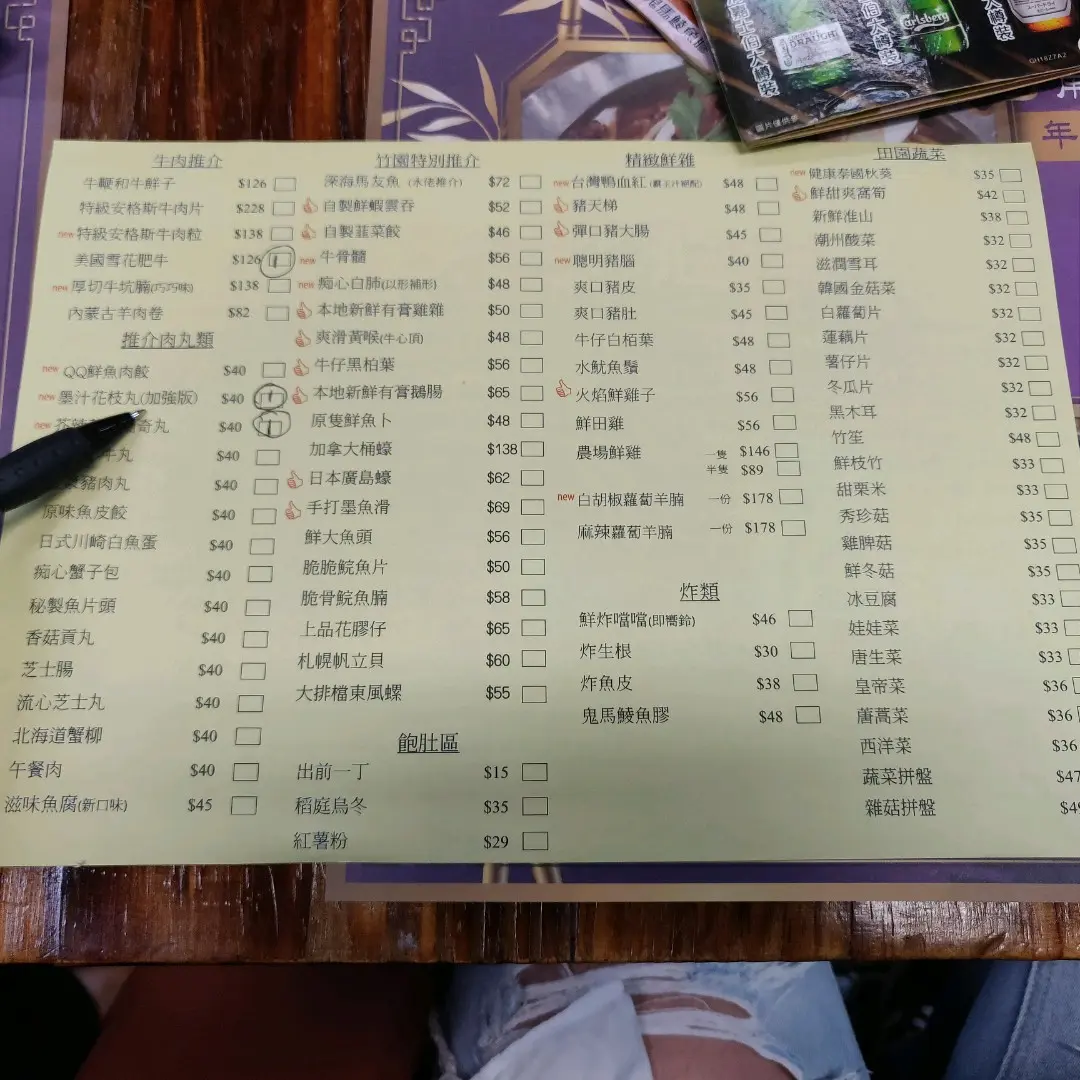 DRAUGHT
Carlsberg
QH1827A2
圖片僅供參
年
牛肉推介
牛鞭和牛鮮子 $126
特級安格斯牛肉片 $228
new 特級安格斯牛肉粒 $138
美國雪花肥牛 $126 1
new 厚切牛坑腩(巧巧味) $138
內蒙古羊肉卷 $82
推介肉丸類
new QQ鮮魚肉餃 $40
new 墨汁花枝丸(加強版) $40 1
new 奇丸 $40 1
牛丸 $40
豬肉丸 $40
原味魚皮餃 $40
日式川崎白魚蛋 $40
痴心蟹子包 $40
秘製魚片頭 $40
香菇貢丸 $40
芝士腸 $40
流心芝士丸 $40
北海道蟹柳 $40
午餐肉 $40
滋味魚腐(新口味) $45
竹園特別推介
深海馬友魚 (水佬推介) $72
自製鮮蝦雲吞 $52
自製韮菜餃 $46
new 牛骨髓 $56
new 痴心白肺(以形補形) $48
本地新鮮有膏雞雜 $50
爽滑黃喉(牛心頂) $48
牛仔黑柏葉 $56
本地新鮮有膏鵝腸 $65
原隻鮮魚卜 $48
加拿大桶蠔 $138
日本廣島蠔 $62
手打墨魚滑 $69
鮮大魚頭 $56
脆脆鯇魚片 $50
脆骨鯇魚腩 $58
上品花膠仔 $65
札幌帆立貝 $60
大排檔東風螺 $55
飽肚區
出前一丁 $15
稻庭烏冬 $35
紅薯粉 $29
精緻鮮雜
new 台灣鴨血紅(霸王汁絕配) $48
豬天梯 $48
彈口豬大腸 $45
new 聰明豬腦 $40
爽口豬皮 $35
爽口豬肚 $45
牛仔白栢葉 $48
水魷魚鬚 $48
火焰鮮雞子 $56
鮮田雞 $56
農場鮮雞 一隻 $146
半隻 $89
new 白胡椒蘿蔔羊腩 一份 $178
麻辣蘿蔔羊腩 一份 $178
炸類
鮮炸噹噹(即嚮鈴) $46
炸生根 $30
炸魚皮 $38
鬼馬鯪魚膠 $48
田園蔬菜
new 健康泰國秋葵 $35
鮮甜爽窩筍 $42
新鮮淮山 $38
潮州酸菜 $32
滋潤雪耳 $32
韓國金菇菜 $32
白蘿蔔片 $32
蓮藕片 $32
薯仔片 $32
冬瓜片 $32
黑木耳 $32
竹笙 $48
鮮枝竹 $33
甜粟米 $33
秀珍菇 $35
雞脾菇 $35
鮮冬菇 $35
冰豆腐 $33
娃娃菜 $33
唐生菜 $33
皇帝菜 $36
蓎蒿菜 $36
西洋菜 $36
蔬菜拼盤 $47
雜菇拼盤